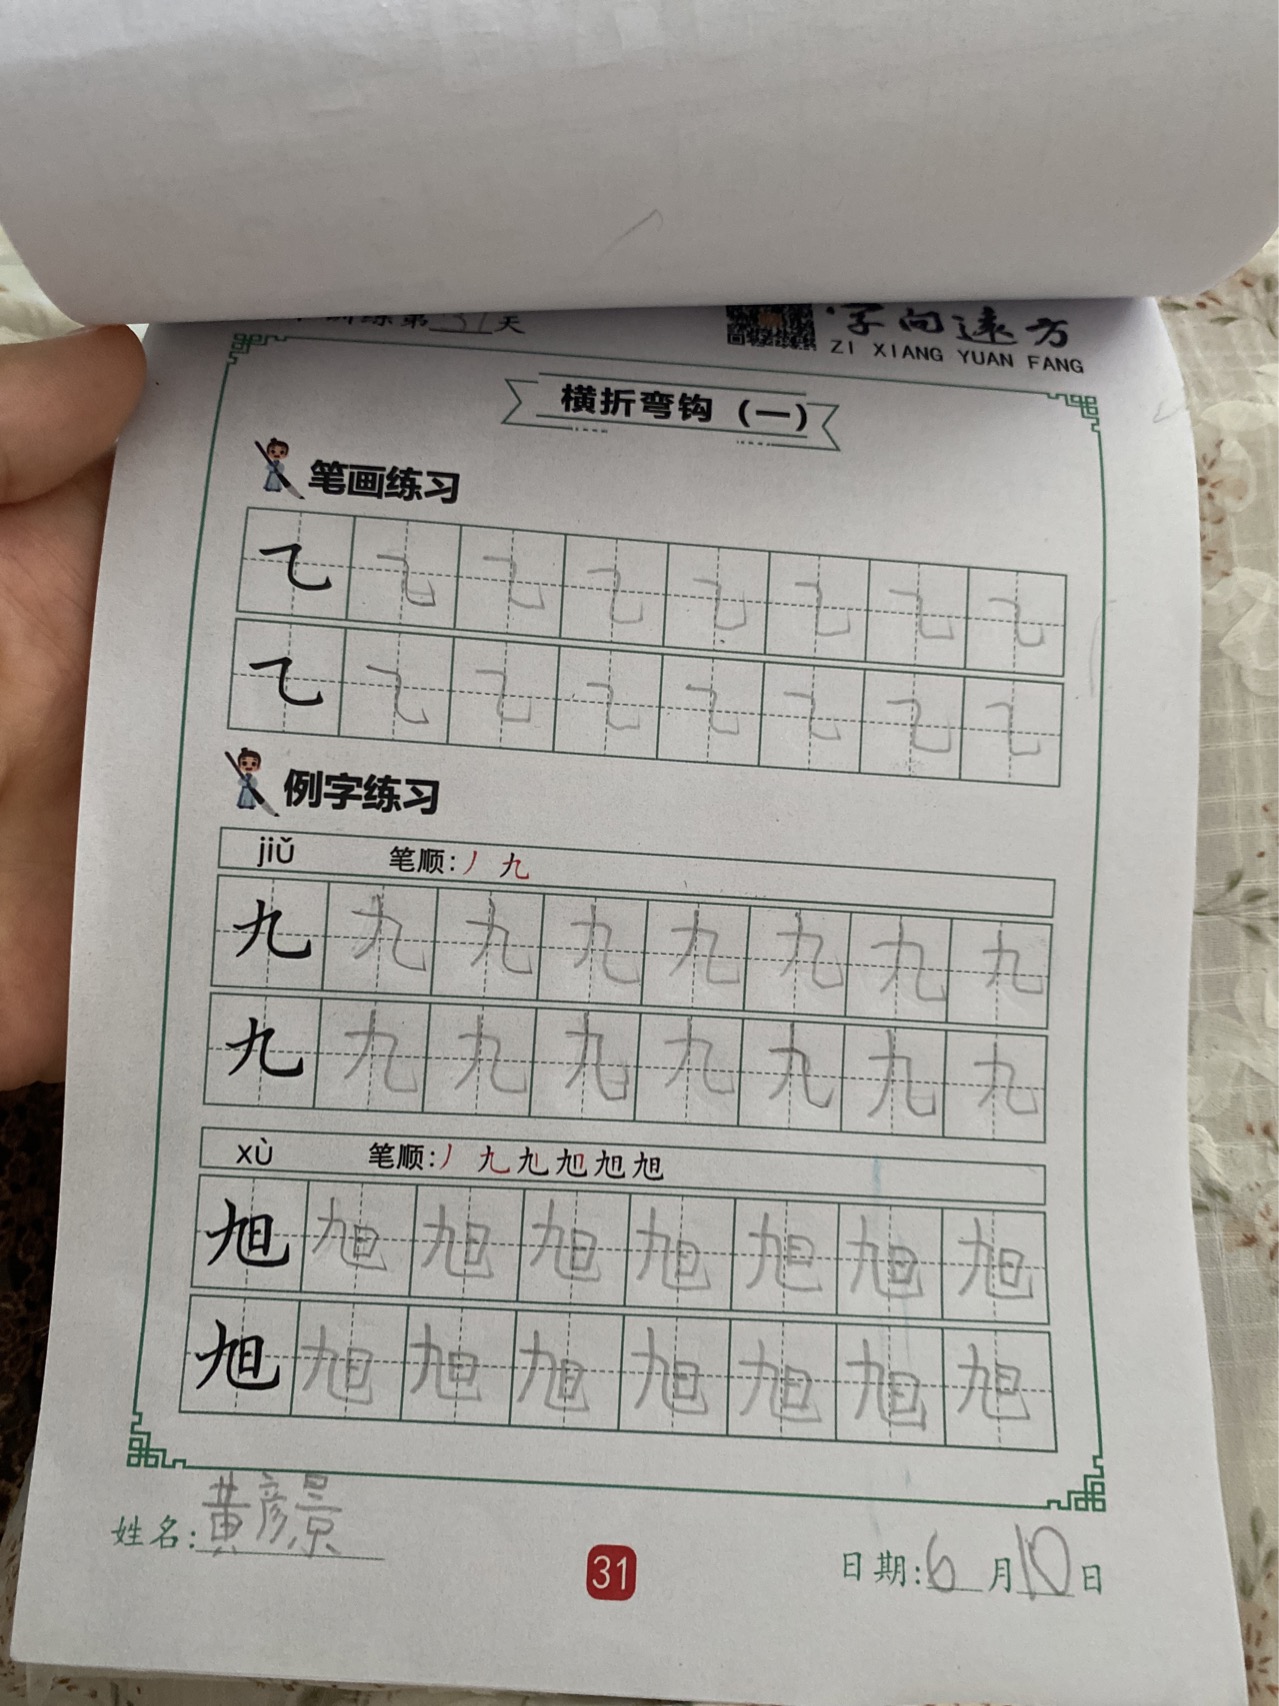 训练第31天
字向远方
ZI XIANG YUAN FANG
横折弯钩（一）
笔画练习
㇈ ㇈ ㇈ ㇈ ㇈ ㇈ ㇈ ㇈
㇈ ㇈ ㇈ ㇈ ㇈ ㇈ ㇈ ㇈
例字练习
jiǔ 笔顺:丿 九
九 九 九 九 九 九 九 九
九 九 九 九 九 九 九 九
xù 笔顺:丿 九 九 旭 旭 旭
旭 旭 旭 旭 旭 旭 旭 旭
旭 旭 旭 旭 旭 旭 旭 旭
姓名:黄彦景
31
日期:6月10日